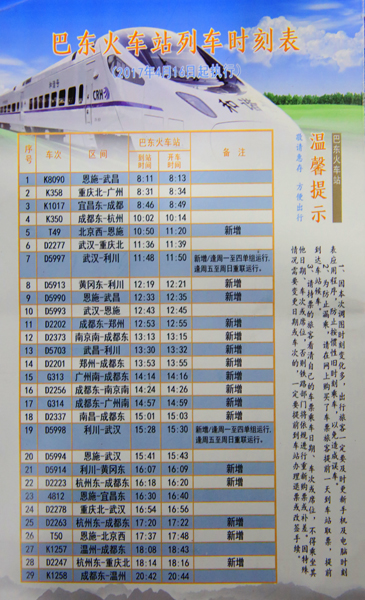 巴东火车站列车时刻表
(2017年4月16日起执行)
CRH
和谐
序号 车次 区间 巴东火车站 备注
到站时间 开车时间
1 K8090 恩施-武昌 8:11 8:13
2 K358 重庆北-广州 8:31 8:34
3 K1017 宜昌东-成都 8:46 8:49
4 K350 成都东-杭州 10:02 10:14
5 T49 北京西-恩施 10:50 11:20 新增
6 D2277 武汉-重庆北 11:36 11:39
7 D5997 武汉-利川 11:48 11:50 新增/逢周一至四单组运行,
逢周五至周日重联运行。
8 D5913 黄冈东-利川 12:19 12:21 新增
9 D5990 恩施-武昌 12:33 12:35 新增
10 D5993 武汉-恩施 12:43 12:45
11 D2202 成都东-郑州 12:53 12:55 新增
12 D2373 南京南-成都东 13:13 13:15 新增
13 D5703 武昌-利川 13:30 13:32 新增
14 D2201 郑州-成都东 13:53 13:55 新增
15 G313 广州南-成都东 14:14 14:16 新增
16 D2256 成都东-南京南 14:24 14:26 新增
17 G314 成都东-广州南 14:57 14:59 新增
18 D2337 南昌-成都东 15:01 15:03 新增
19 D5998 利川-武汉 15:28 15:30 新增/逢周一至四单组运行,
逢周五至周日重联运行。
20 D5994 恩施-武汉 15:41 15:43
21 D5914 利川-黄冈东 16:07 16:09 新增
22 D2223 杭州东-成都东 16:18 16:20 新增
23 4812 恩施-宜昌东 16:30 16:40
24 D2278 重庆北-武汉 16:54 16:56
25 D2263 杭州东-成都东 17:20 17:22 新增
26 T50 恩施-北京西 17:37 17:48 新增
27 K1257 温州-成都东 18:08 18:43
28 D2247 杭州东-重庆北 18:14 18:16 新增
29 K1258 成都东-温州 20:42 20:44
巴东火车站
温馨提示
敬请惠存 方便出行
一、因本次调图时刻变化多，出行旅客一定要及时更新手机及电脑时刻
表应用程序，防止按惯性旧时刻乘车，以免造成误乘。
二、为防止漏乘，在网上购买了异地票旅客提前一天到车站取票，提前
到达车站候车。
三、请持票的旅客看清自己的车票乘车日期、车次或席位，不得乘坐其
他日期、车次或席位，否则铁路部门将依规进行重新购票或补差，因特殊
情况需要变更日期或车次的，一定要提前到车站办理退票或改签手续。